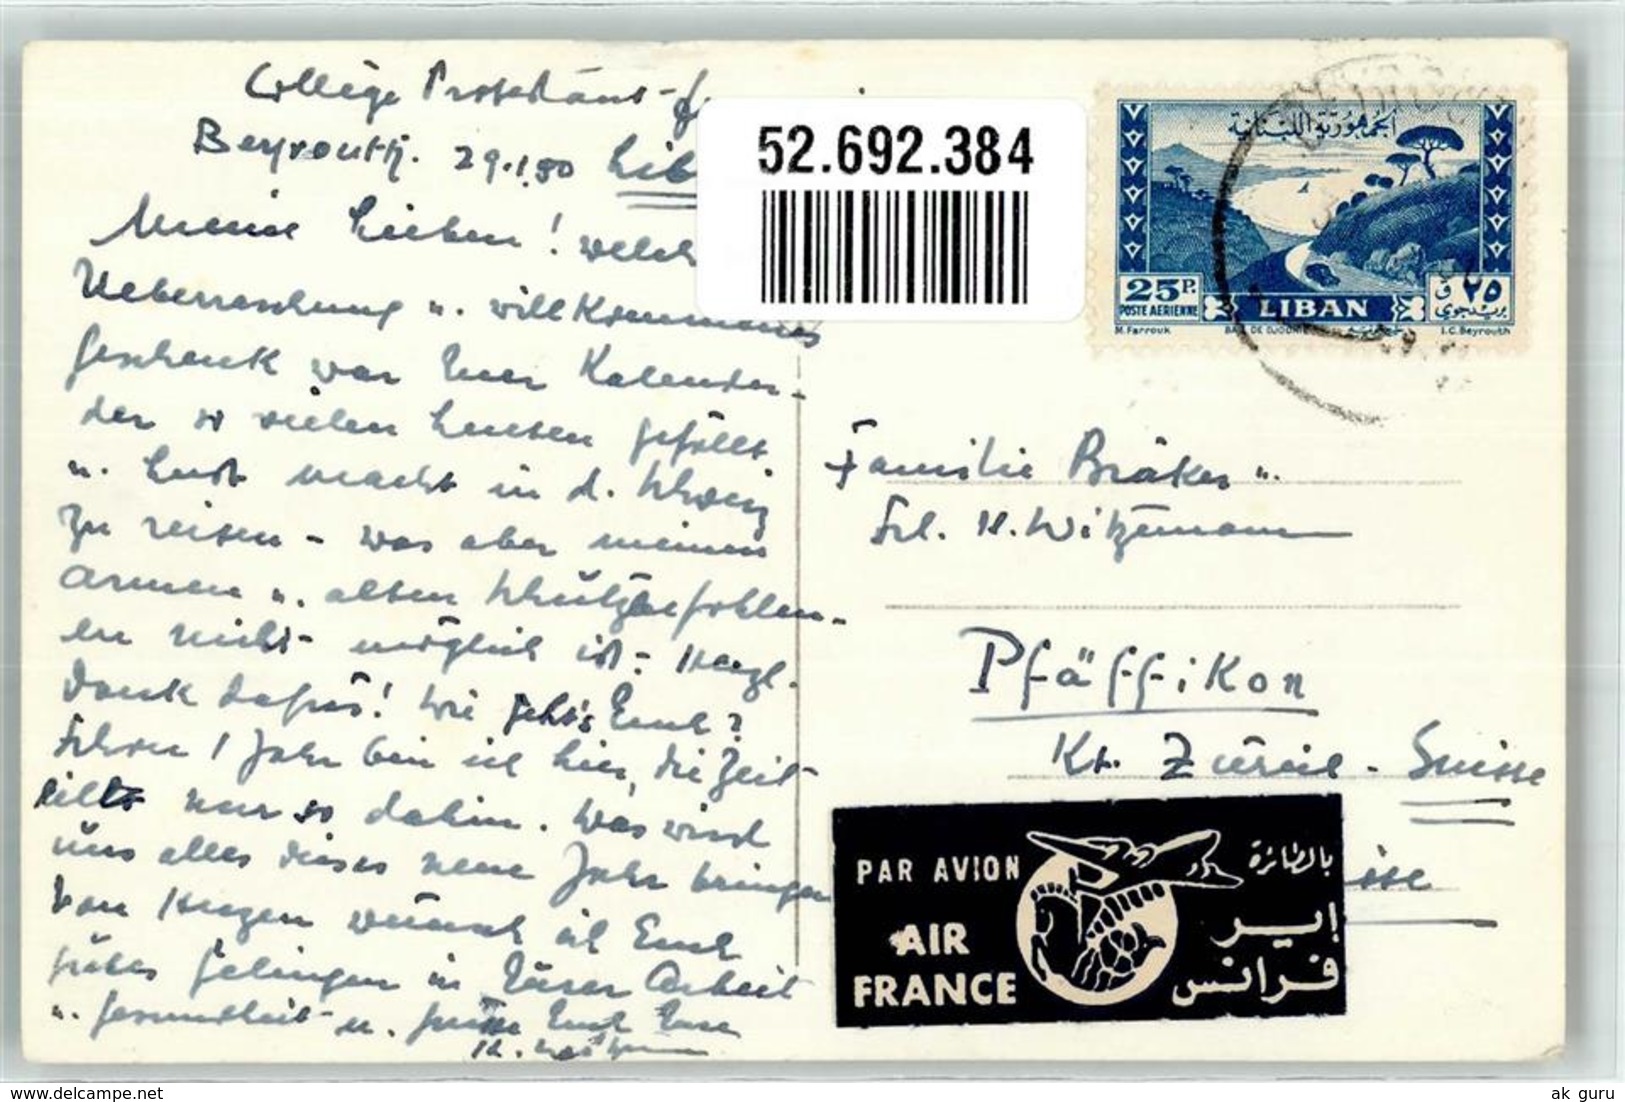 Collège Protestant-
Beyrouth. 29.1.50 Lib
Meine Lieben! welch
Ueberraschung u. willkommenes
Geschenk war Euer Kalender-
der so vielen Leuten gefällt
u. Lust macht in d. Schweiz
zu reisen - was aber meinen
armen u. alten Schutzbefohlen-
en nicht möglich ist. Herzl.
Dank dafür! Wie geht's Euch?
Schon 1 Jahr bin ich hier, die Zeit
eilt nur so dahin. Was wird
uns alles dieses neue Jahr bringen
Von Herzen wünsch ich Euch
gutes Gelingen in Eurer Arbeit
u. Gesundheit u. grüsse Euch Eure
H. Witzemann
52.692.384
الجمهورية اللبنانية
25P.
POSTE AERIENNE
LIBAN
٢٥ ق
بريد جوي
M. Farrouk
BAIE DE DJOUNIE
I.C. Beyrouth
Familie Bräker u.
Frl. H. Witzemann
Pfäffikon
Kt. Zürich - Suisse
PAR AVION
بالطائرة
AIR
FRANCE
إير
فرانس
isse
ak guru